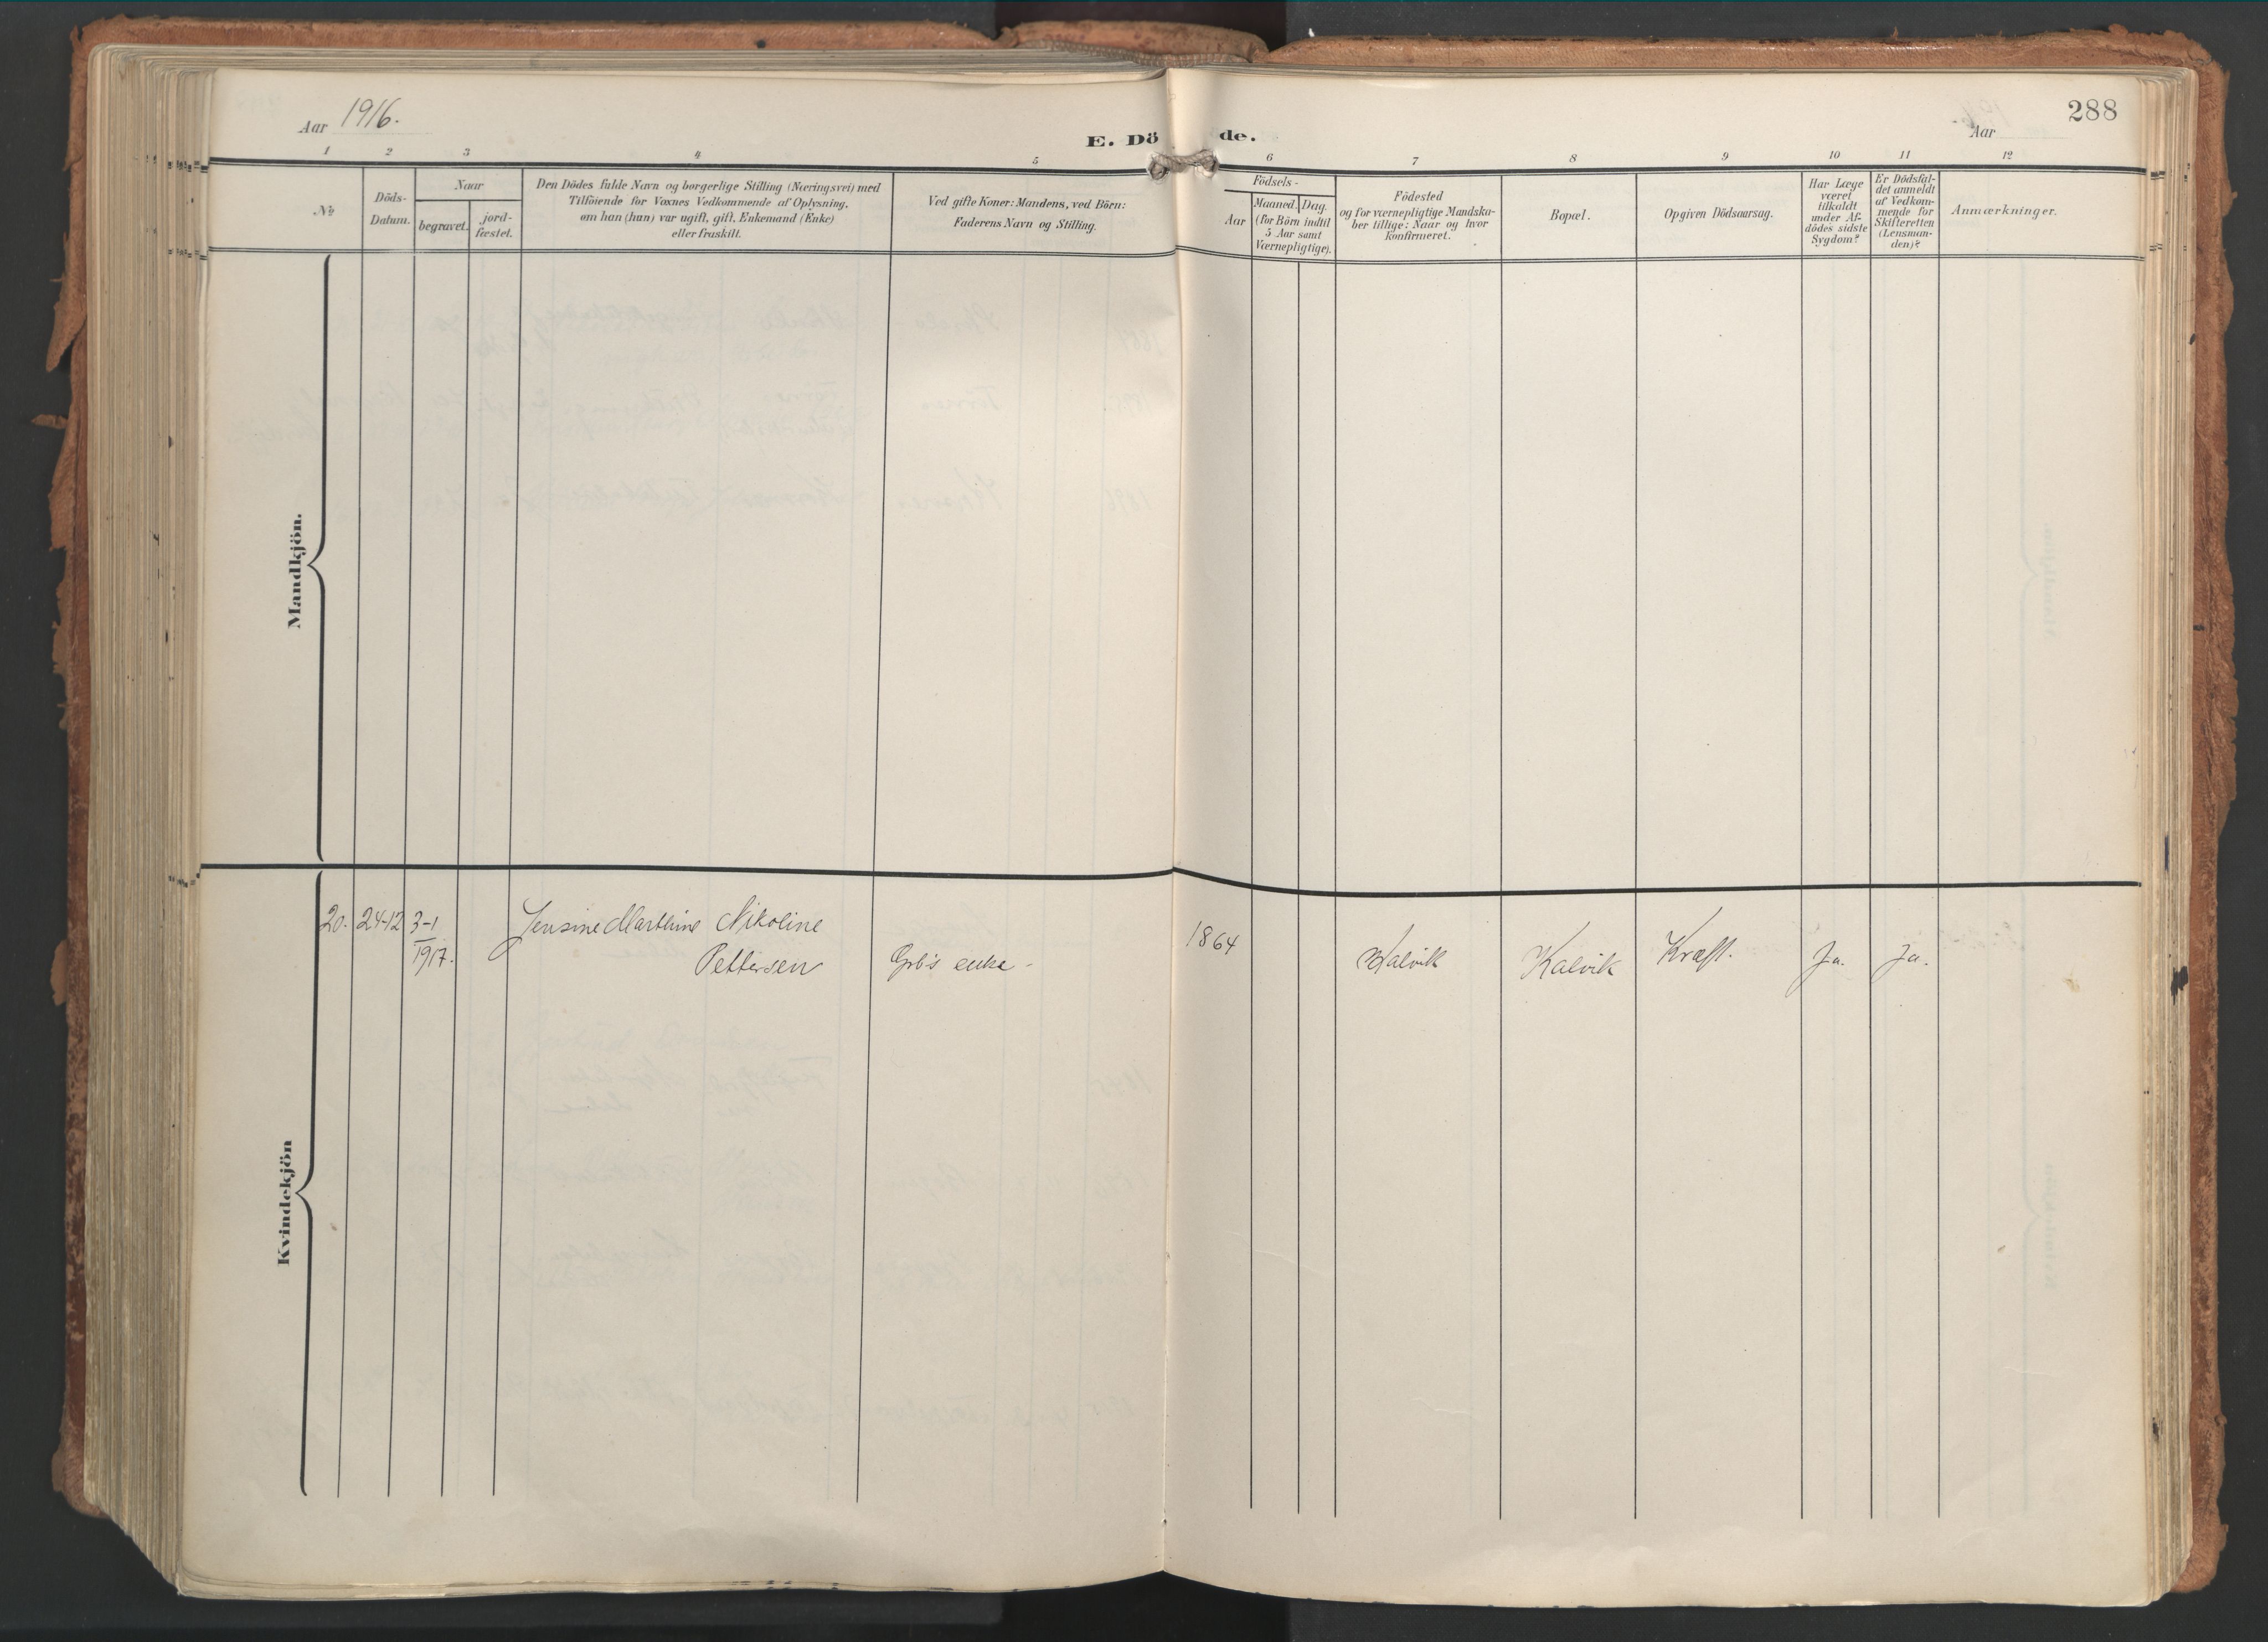 Aar 1916.
E. Dö de.
Aar
288
1 2 3 4 5 6 7 8 9 10 11 12
No
Döds-
Datum.
Naar
begravet.
jord-
fæstet.
Den Dödes fulde Navn og borgerlige Stilling (Næringsvei) med
Tilföiende for Voxnes Vedkommende af Oplysning,
om han (hun) var ugift, gift, Enkemand (Enke)
eller fraskilt.
Ved gifte Koner: Mandens, ved Börn:
Faderens Navn og Stilling.
Födsels-
Aar
Maaned. Dag.
(for Börn indtil
5 Aar samt
Værnepligtige).
Födested
og for værnepligtige Mandska-
ber tillige: Naar og hvor
konfirmeret.
Bopæl.
Opgiven Dödsaarsag.
Har Læge
været
tilkaldt
under Af-
dödes sidste
Sygdom?
Er Dödsfal-
det anmeldt
af Vedkom-
mende for
Skifteretten
(Lensman-
den)?
Anmærkninger.
Mandkjön.
Kvindekjön
20. 24-12 3-1
1917.
Jensine Marthine Nikoline
Pettersen
Grb's enke -
1864
Kalvik
Kalvik
Kræft.
Ja.
Ja.